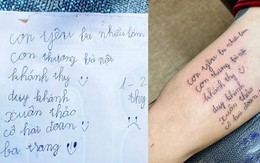 con yêu bà nhiều lắm
con thương bà nội
khánh thy
duy khánh
xuân thảo
cô hai đoan
ba trang
1 - 2
thy
con yêu bà nhiều lắm
con thương bà nội
khánh thy
duy khánh
xuân thảo
cô hai đoan
ba